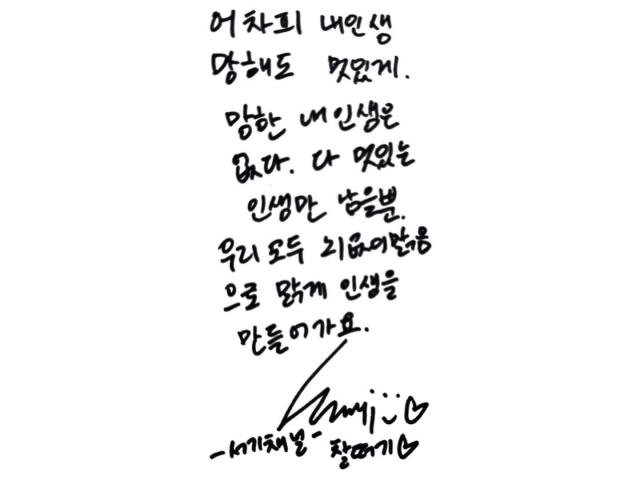 어차피 내인생
망해도 멋있게.
망한 내 인생은
없다. 다 멋있는
인생만 남을뿐.
우리 모두 티없이맑음
으로 맑게 인생을
만들어가요.
-서기채널- 찰떠기♡